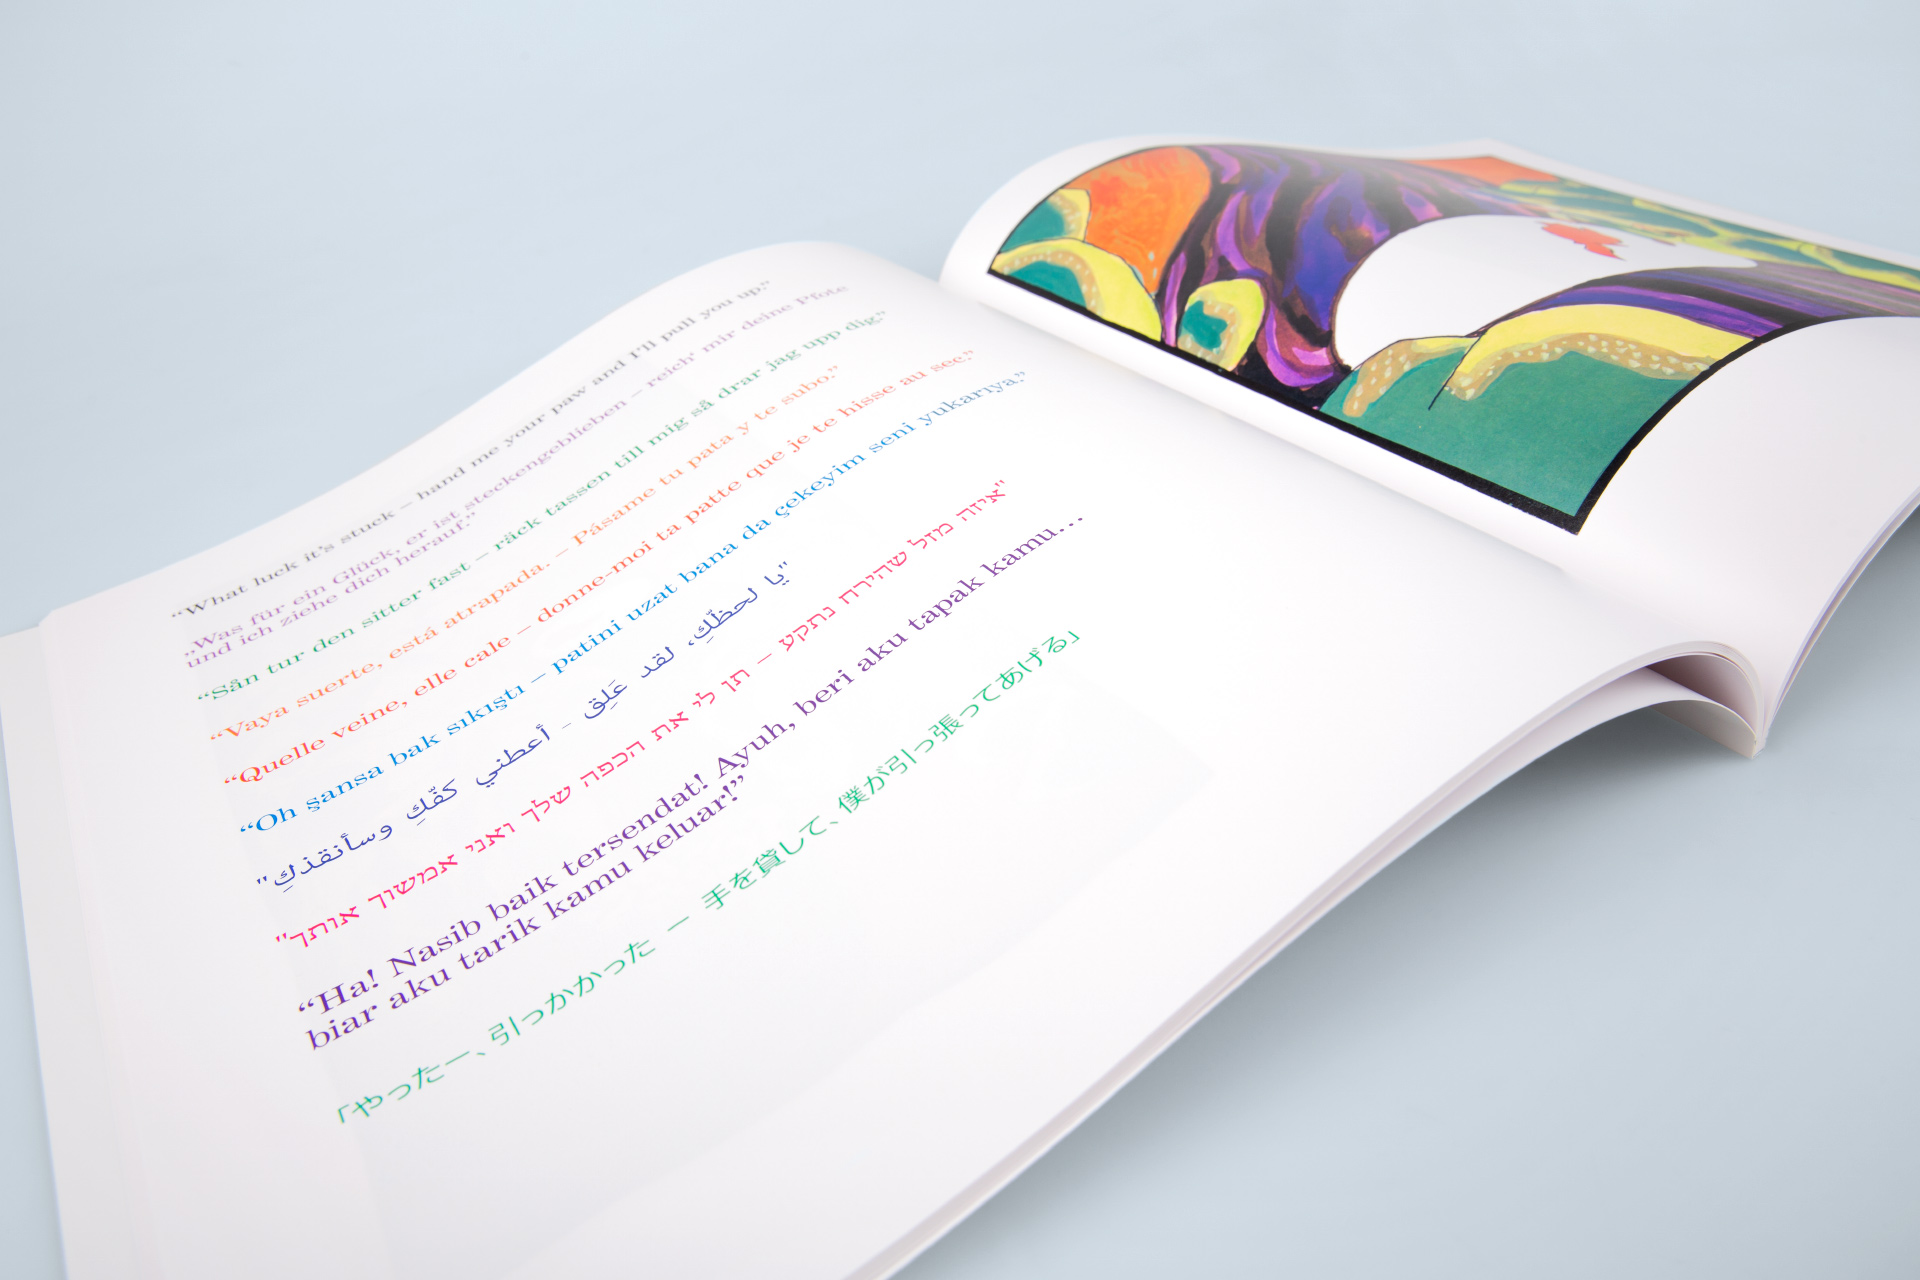 “What luck it’s stuck – hand me your paw and I’ll pull you up.”
„Was für ein Glück, er ist steckengeblieben – reich’ mir deine Pfote
und ich ziehe dich herauf.”
“Sån tur den sitter fast – räck tassen till mig så drar jag upp dig.”
“Vaya suerte, está atrapada. – Pásame tu pata y te subo.”
“Quelle veine, elle cale – donne-moi ta patte que je te hisse au sec.”
“Oh şansa bak sıkıştı – patini uzat bana da çekeyim seni yukarıya.”
"يا لحظّكِ، لقد عَلِق - أعطني كفّكِ وسأنقذكِ"
"איזה מזל שהירח נתקע – תן לי את הכפה שלך ואני אמשוך אותך"
“Ha! Nasib baik tersendat! Ayuh, beri aku tapak kamu...
biar aku tarik kamu keluar!”
「やったー、引っかかった ー 手を貸して、僕が引っ張ってあげる」